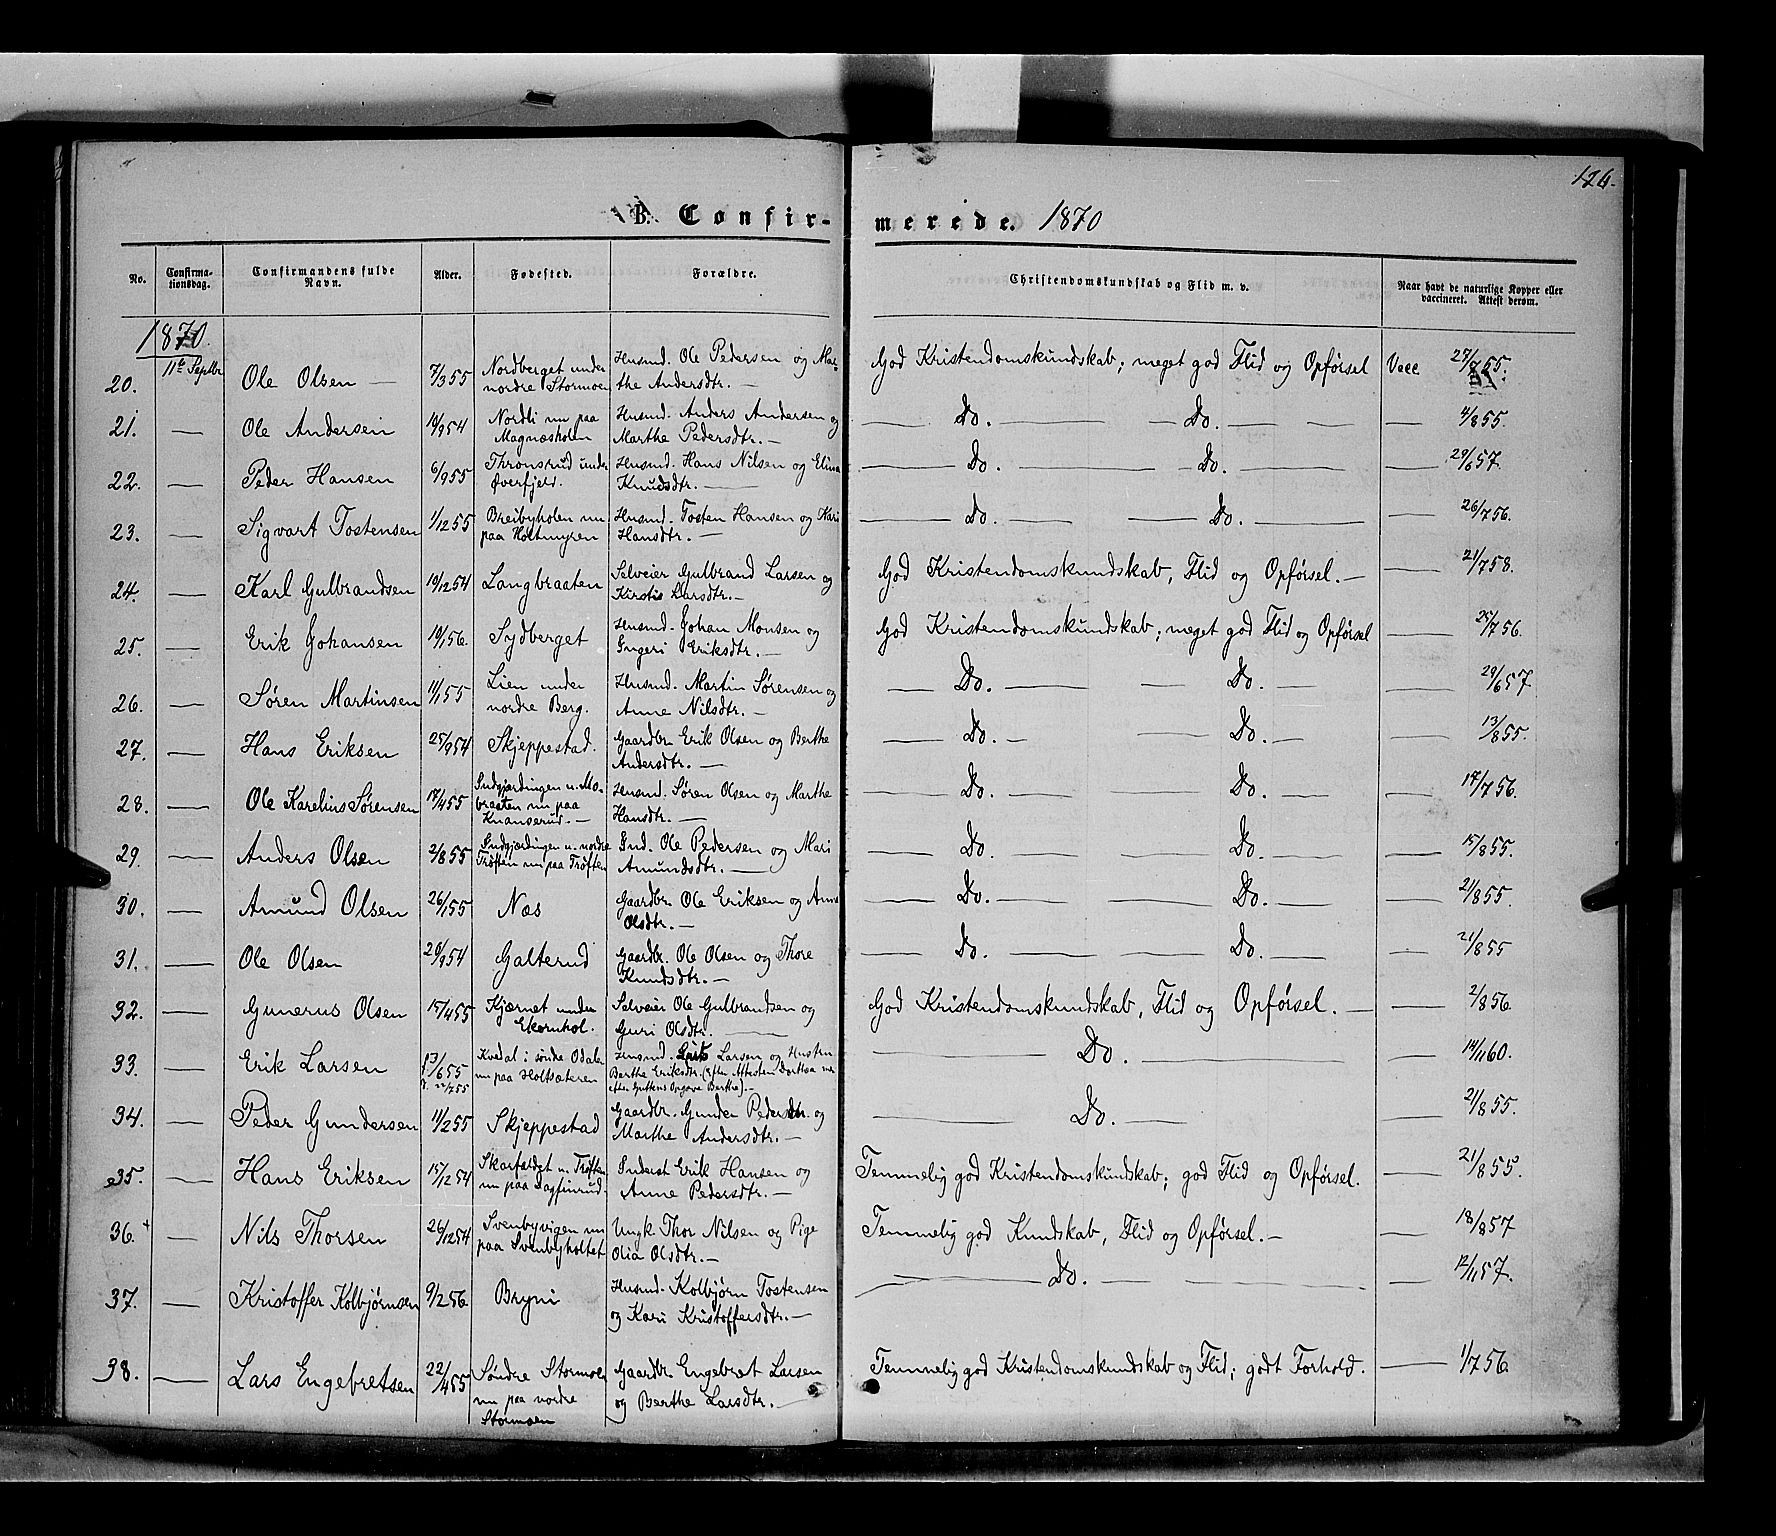 126.
B. Confirmerede. 1870
No. | Confirmationsdag. | Confirmandens fulde Navn. | Alder. | Fødested. | Forældre. | Christendomskundskab og Flid m. v. | Naar havt de naturlige Kopper eller vaccineret. Attest derom.
1870.
20. | 11te Septbr | Ole Olsen — | 7/3 55 | Nordberget under nordre Stormoen | Husmd. Ole Pedersen og Marthe Andersdtr. — | God Kristendomskundskab; meget god Flid og Opførsel | Vacc 27/8 55.
21. | — | Ole Andersen | 19/9 54 | Nordli nu paa Magnæsholen | Husmd. Anders Andersen og Marthe Pedersdtr. — | — Do. — Do. — | — 4/8 55.
22. | — | Peder Hansen | 6/9 55 | Thronsrud under Øverfjeld. | Husmd. Hans Nilsen og Elina Knudsdtr. — | — Do. — Do. — | — 29/6 57.
23. | — | Sigvart Tostensen | 1/12 55 | Breibyholen nu paa Holtmyren | Husmd. Tosten Hansen og Kari Hansdtr. — | — Do. — Do. — | — 26/7 56.
24. | — | Karl Gulbrandsen | 10/12 54 | Langbraaten | Selveier Gulbrand Larsen og Kirstie Larsdtr. — | God Kristendomskundskab, Flid og Opførsel. — | — 21/7 58.
25. | — | Erik Johansen | 19/1 56. | Sydberget | Husmd. Johan Monsen og Ingeri Eriksdtr. — | God Kristendomskundskab; meget god Flid og Opførsel | — 25/7 56.
26. | — | Søren Martinsen | 11/1 55 | Lien under nordre Berg. | Husmd. Martin Sørensen og Anne Nilsdtr. — | — Do. — Do. — | — 29/6 57
27. | — | Hans Eriksen | 25/9 54 | Skjeppestad. | Gaardbr. Erik Olsen og Berthe Andersdtr. — | — Do. — Do. — | — 13/8 55.
28. | — | Ole Karelius Sørensen | 17/4 55 | Indgjærdingen u. Mobraaten nu paa Knanserud. — | Husmd. Søren Olsen og Marthe Hansdtr. — | — Do. — Do. — | — 17/7 56.
29. | — | Anders Olsen | 2/8 55 | Indgjærdingen u. nordre Trøften nu paa Trøften | Ind. Ole Pedersen og Mari Amundsdtr. — | — Do. — Do. — | — 15/8 55.
30. | — | Amund Olsen | 26/1 55 | Næs | Gaardbr. Ole Eriksen og Anne Olsdtr. — | — Do. — Do. — | — 21/8 55.
31. | — | Ole Olsen | 29/9 54 | Galterud | Gaardbr. Ole Olsen og Thore Knudsdtr. — | — Do. — Do. — | — 21/8 55
32. | — | Gunerus Olsen | 15/4 55 | Kjernet under Ekornhol. | Selveier Ole Gulbrandsen og Guri Olsdtr. — | God Kristendomskundskab, Flid og Opførsel. — | — 2/8 56.
33. | — | Erik Larsen | f 13/6 55 d. 22/7 55 | Kvedal i søndre Odalen nu paa Holtsæteren | Husmd. Lars Larsen og Hustru Berthe Eriksdtr. (efter Attesten Dorthea men efter Guttens Opgave Berthe). — | — Do. — | — 14/11 60.
34. | — | Peder Gundersen | 11/2 55 | Skjeppestad | Gaardbr. Gunder Pedersen og Marthe Andersdtr. — | — Do. — | — 21/8 55.
35. | — | Hans Eriksen | 15/12 54 | u. Trøften nu paa Dagfinrud. | Inderst Erik Hansen og Anne Pedersdtr. — | Temmelig god Kristendomskundskab; god Flid og Opførsel. | — 21/8 55.
36. + | — | Nils Thorsen | 26/12 54 | Svenbyvigen nu paa Svenbyholtet | Ungk. Thor Nilsen og Pige Olia Olsdtr. — | Temmelig god Kundskab, Flid og Opførsel. — | — 18/8 57
37. | — | Kristoffer Kolbjørnsen | 9/2 56. | Bryni | Husmd. Kolbjørn Tostensen og Kari Kristoffersdtr. — | — Do. — | — 12/11 57.
38. | — | Lars Engebretsen | 22/4 55 | Søndre Stormoen nu paa nordre Stormoen | Gaardbr Engebret Larsen og Berthe Larsdtr. — | Temmelig god Kristendomskundskab og Flid; godt Forhold. | — 1/7 56.